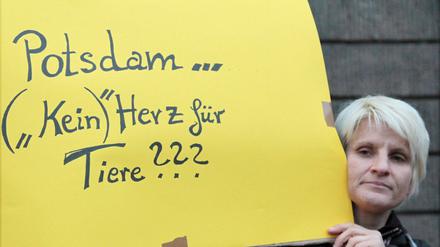 Potsdam...
(„Kein") Herz für
Tiere ???